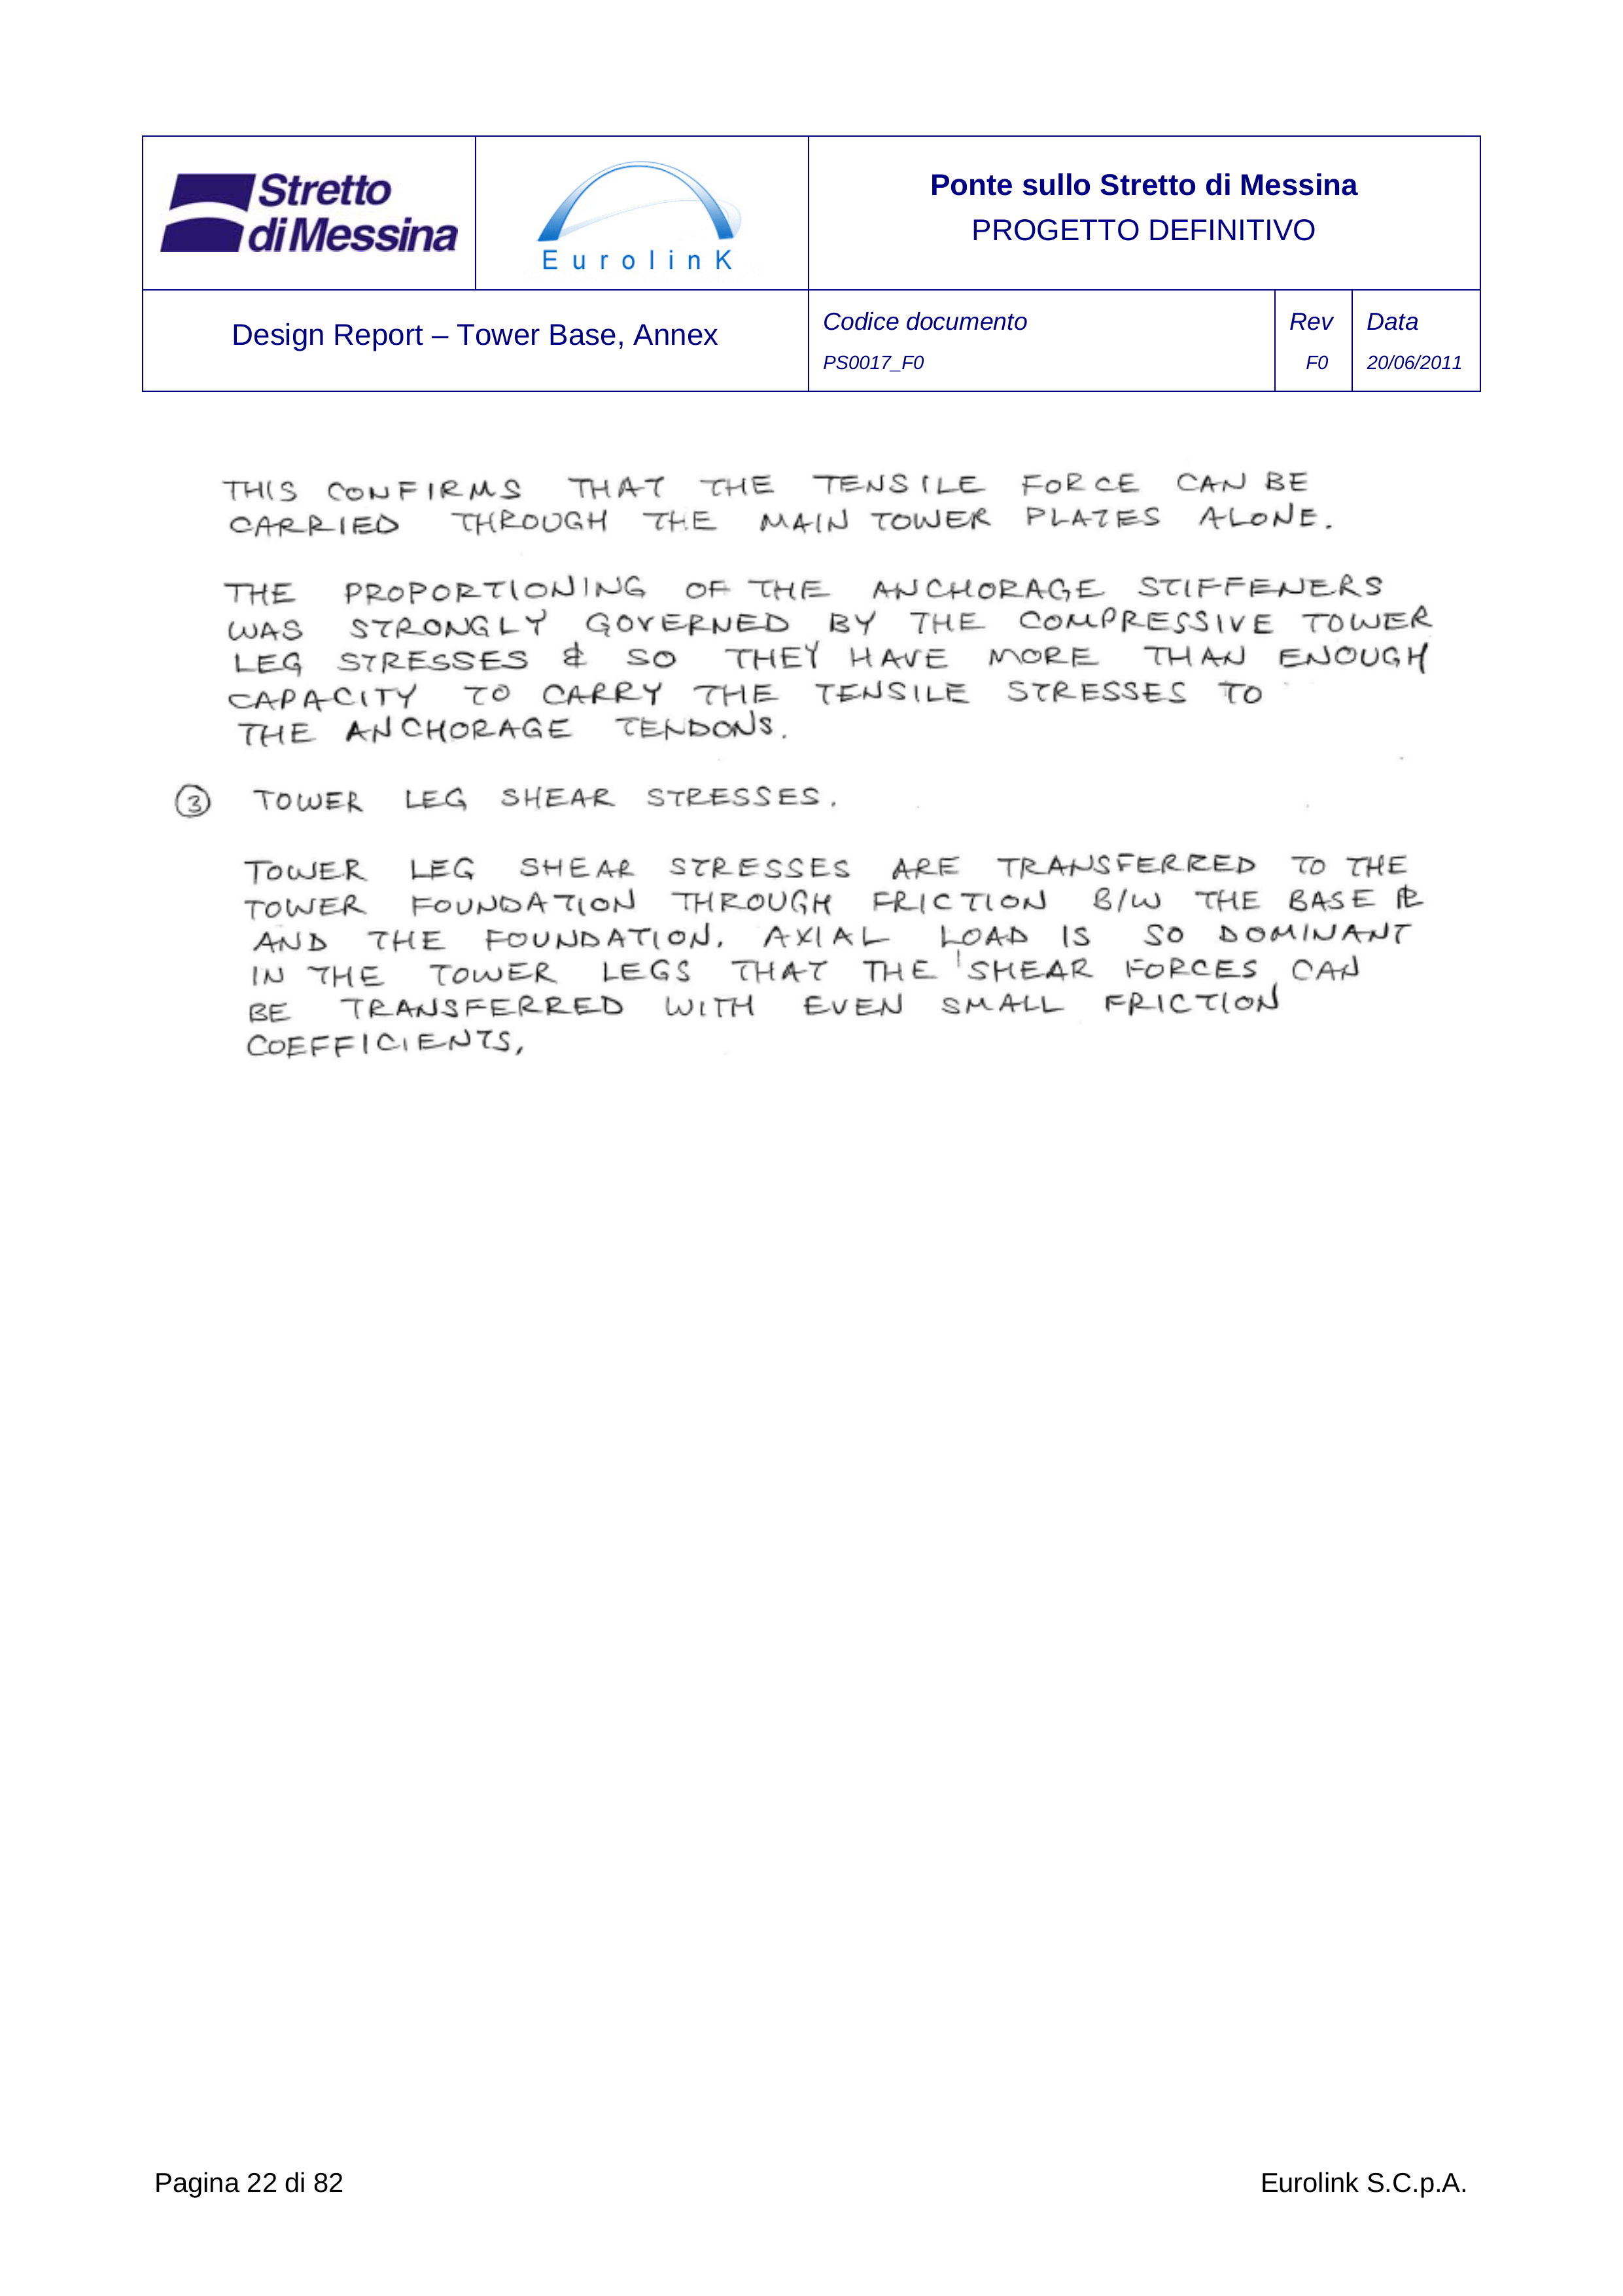 Stretto
di Messina
EurolinK
Ponte sullo Stretto di Messina
PROGETTO DEFINITIVO
Design Report – Tower Base, Annex
Codice documento
PS0017_F0
Rev
F0
Data
20/06/2011
THIS CONFIRMS THAT THE TENSILE FORCE CAN BE
CARRIED THROUGH THE MAIN TOWER PLATES ALONE.
THE PROPORTIONING OF THE ANCHORAGE STIFFENERS
WAS STRONGLY GOVERNED BY THE COMPRESSIVE TOWER
LEG STRESSES & SO THEY HAVE MORE THAN ENOUGH
CAPACITY TO CARRY THE TENSILE STRESSES TO
THE ANCHORAGE TENDONS.
③ TOWER LEG SHEAR STRESSES.
TOWER LEG SHEAR STRESSES ARE TRANSFERRED TO THE
TOWER FOUNDATION THROUGH FRICTION B/W THE BASE PL
AND THE FOUNDATION. AXIAL LOAD IS SO DOMINANT
IN THE TOWER LEGS THAT THE SHEAR FORCES CAN
BE TRANSFERRED WITH EVEN SMALL FRICTION
COEFFICIENTS,
Pagina 22 di 82
Eurolink S.C.p.A.